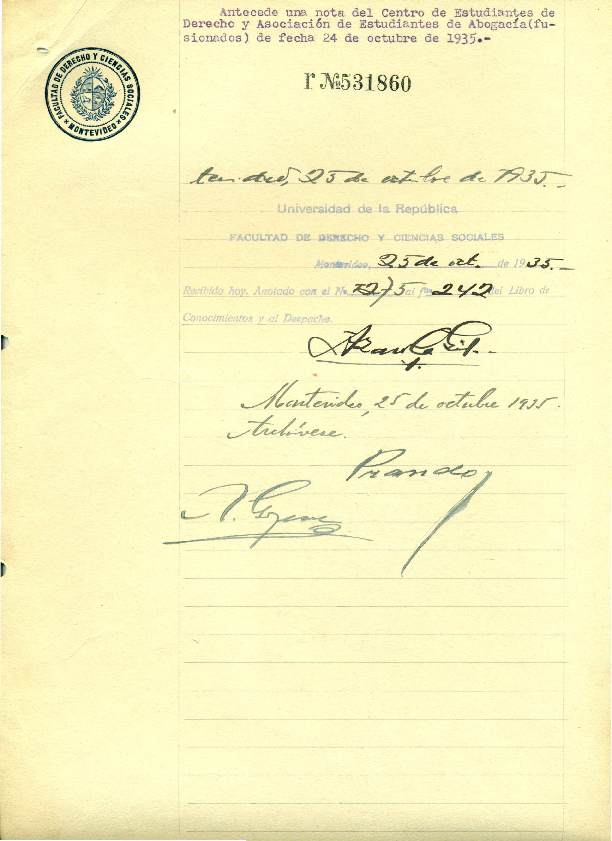 Antecede una nota del Centro de Estudiantes de
Derecho y Asociación de Estudiantes de Abogacía(fu-
sionados) de fecha 24 de octubre de 1935.-
FACULTAD DE DERECHO Y CIENCIAS SOCIALES
MONTEVIDEO
r №531860
25 de octubre de 1935.-
Universidad de la República
FACULTAD DE DERECHO Y CIENCIAS SOCIALES
Montevideo, 25 de oct. de 1935.-
Recibida hoy. Anotado con el N. al 242 del Libro de
Conocimientos y al Despacho.
Montevideo, 25 de octubre 1935.
Archívese.
Prando